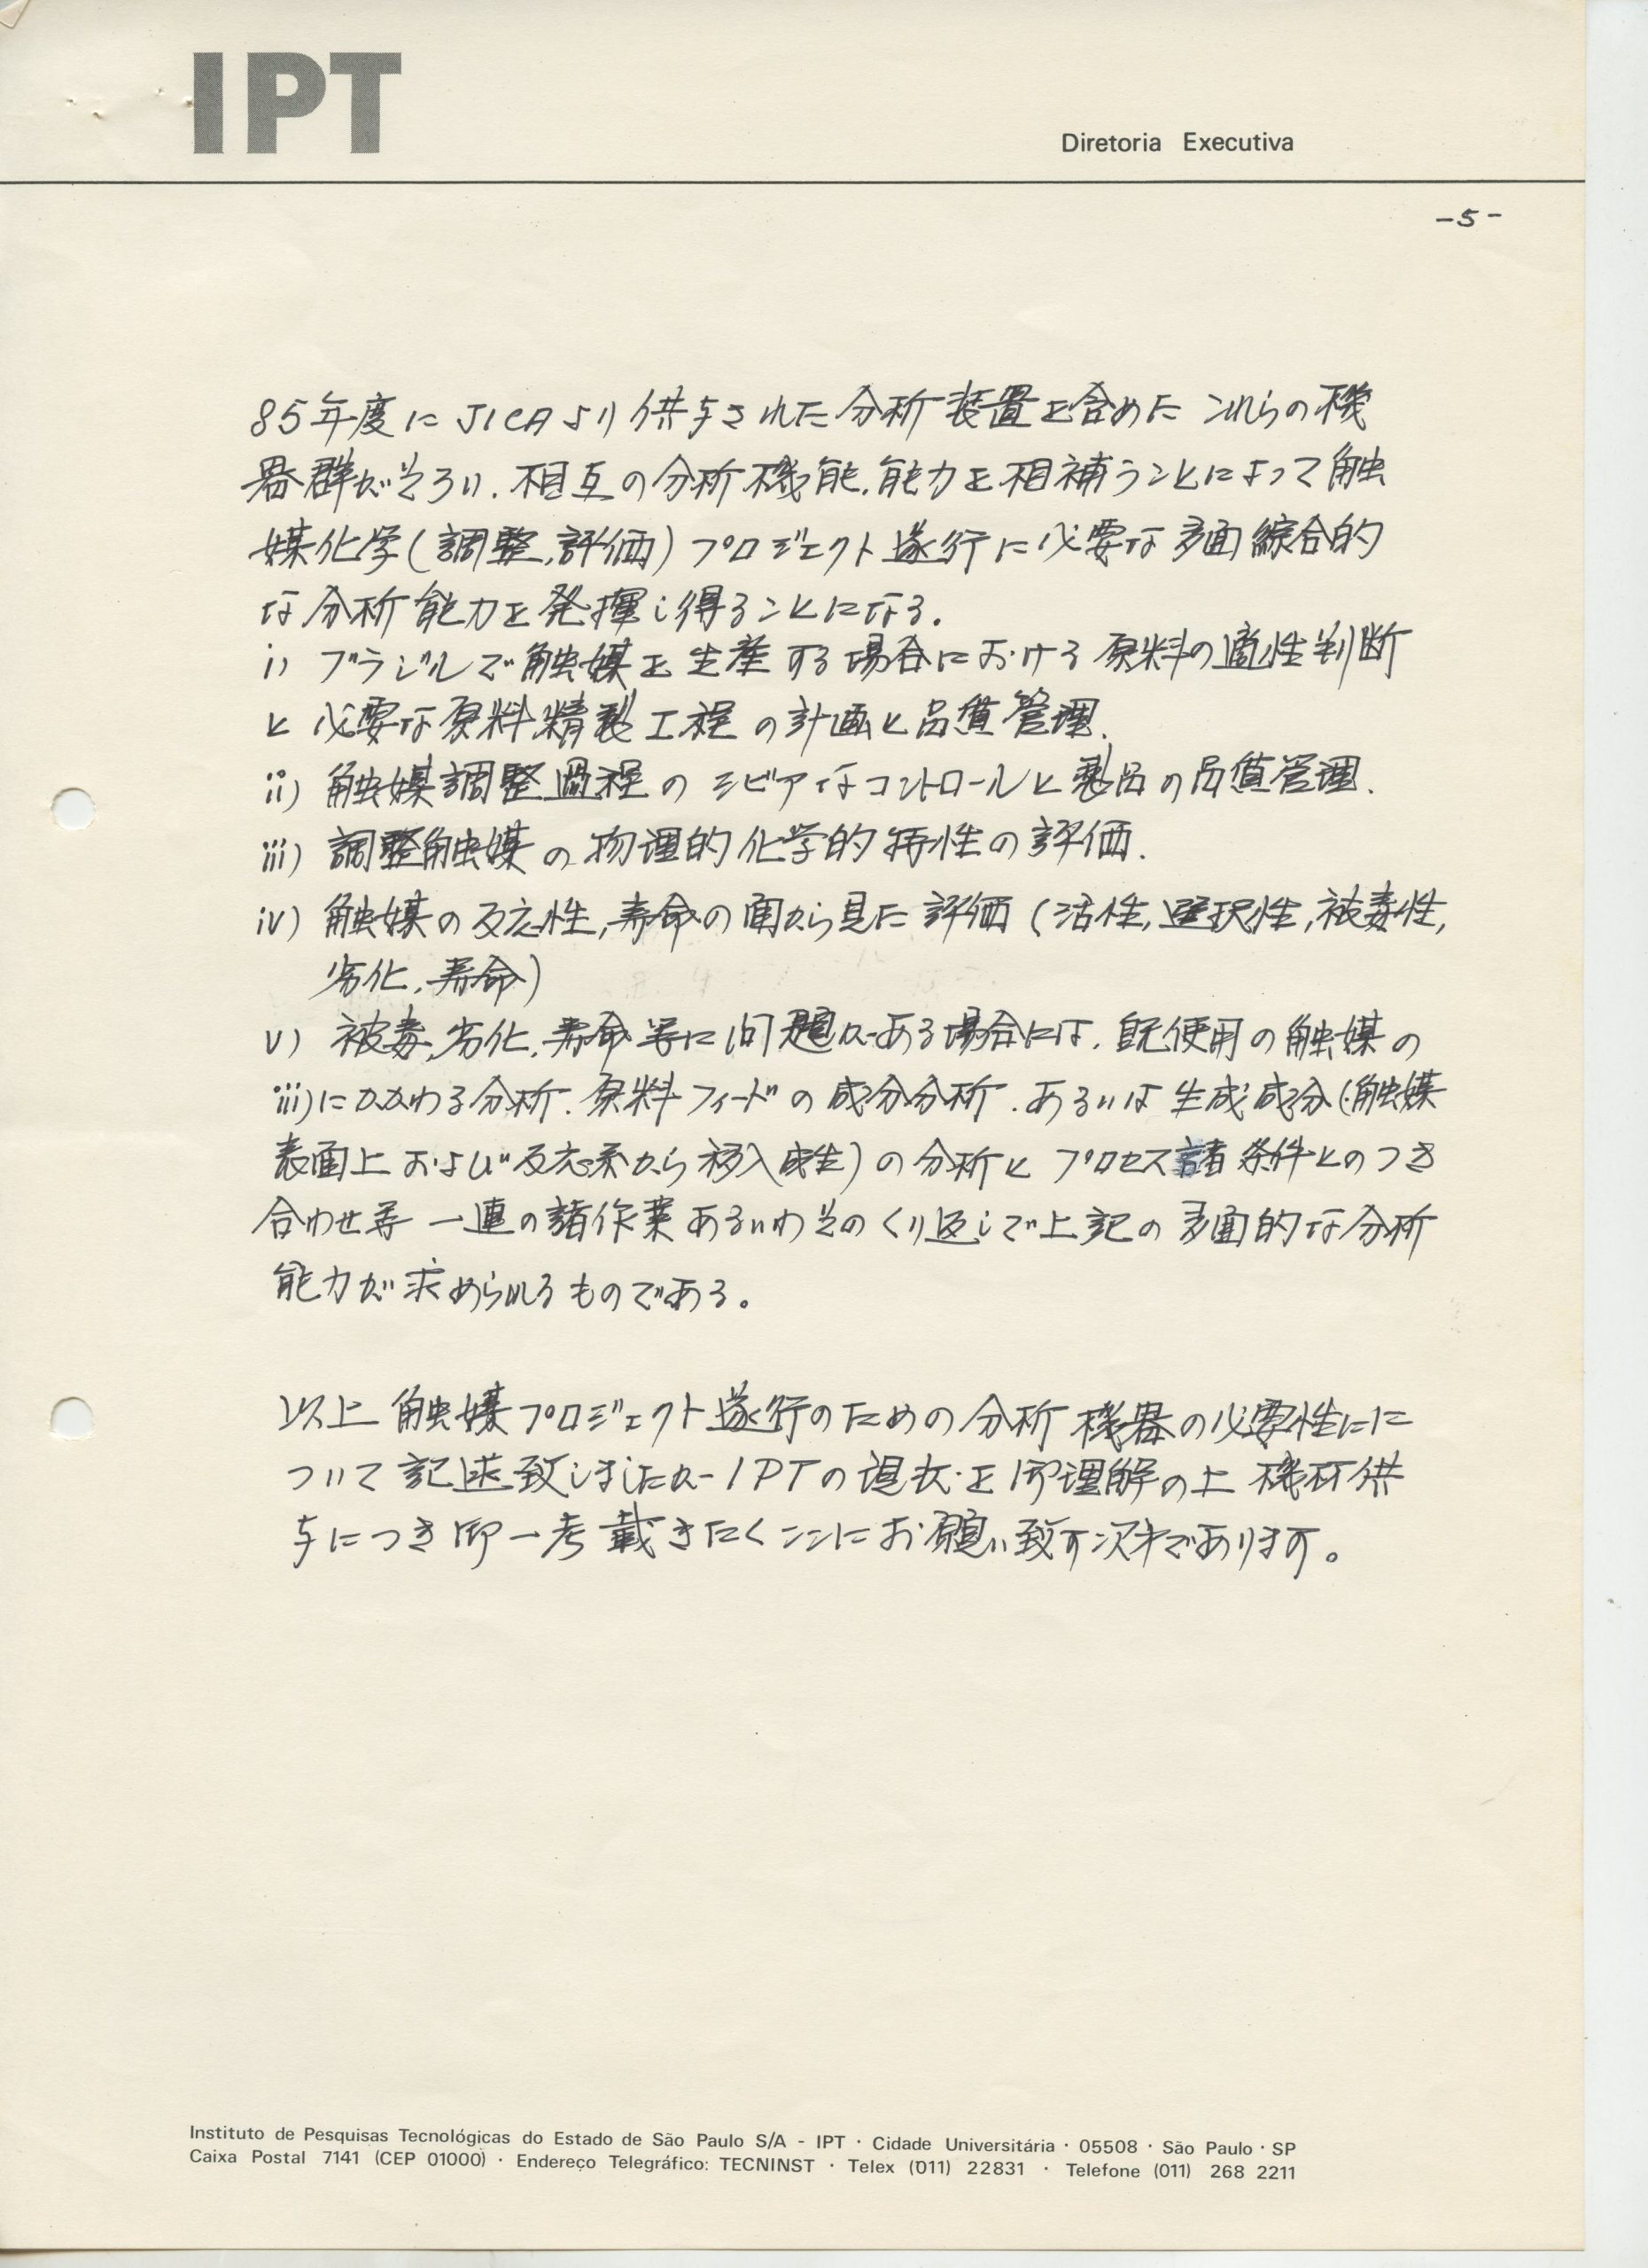 IPT
Diretoria Executiva
-5-
85年度に JICAより供与された分析装置を含めた これらの機
器群がそろい、相互の分析機能、能力を相補うことによって触
媒化学(調整、評価)プロジェクト遂行に必要な多面綜合的
な分析能力を発揮し得ることになる。
i) ブラジルで触媒を生産する場合における原料の適性判断
と必要な原料精製工程の計画と品質管理、
ii) 触媒調整過程のシビアなコントロールと製品の品質管理、
iii) 調整触媒の物理的化学的特性の評価、
iv) 触媒の反応性、寿命の面から見た評価(活性、選択性、被毒性、
劣化、寿命)
v) 被毒、劣化、寿命等に問題がある場合には、既使用の触媒の
iii)にかかわる分析、原料フィードの成分分析、あるいは生成成分(触媒
表面上および反応系から移入成生)の分析とプロセス諸条件とのつき
合わせ等一連の諸作業あるいわそのくり返しで上記の多面的な分析
能力が求められるものである。
以上触媒プロジェクト遂行のための分析機器の必要性にに
ついて記述致しましたが IPTの の上 機材供
与につき御一考戴きたくここにお願い致す次才であります。
Instituto de Pesquisas Tecnológicas do Estado de São Paulo S/A - IPT · Cidade Universitária · 05508 · São Paulo · SP
Caixa Postal 7141 (CEP 01000) · Endereço Telegráfico: TECNINST · Telex (011) 22831 · Telefone (011) 268 2211